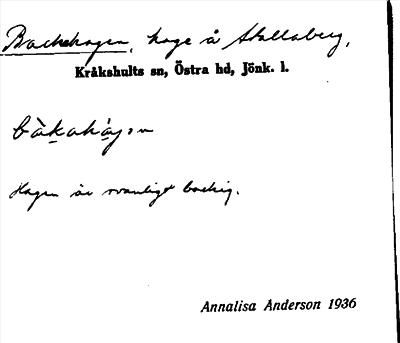 Backehagen, hage å Skallaberg,
Kråkshults sn, Östra hd, Jönk. l.
bàkahàgən
Hagen är ovanligt backig.
Annalisa Anderson 1936